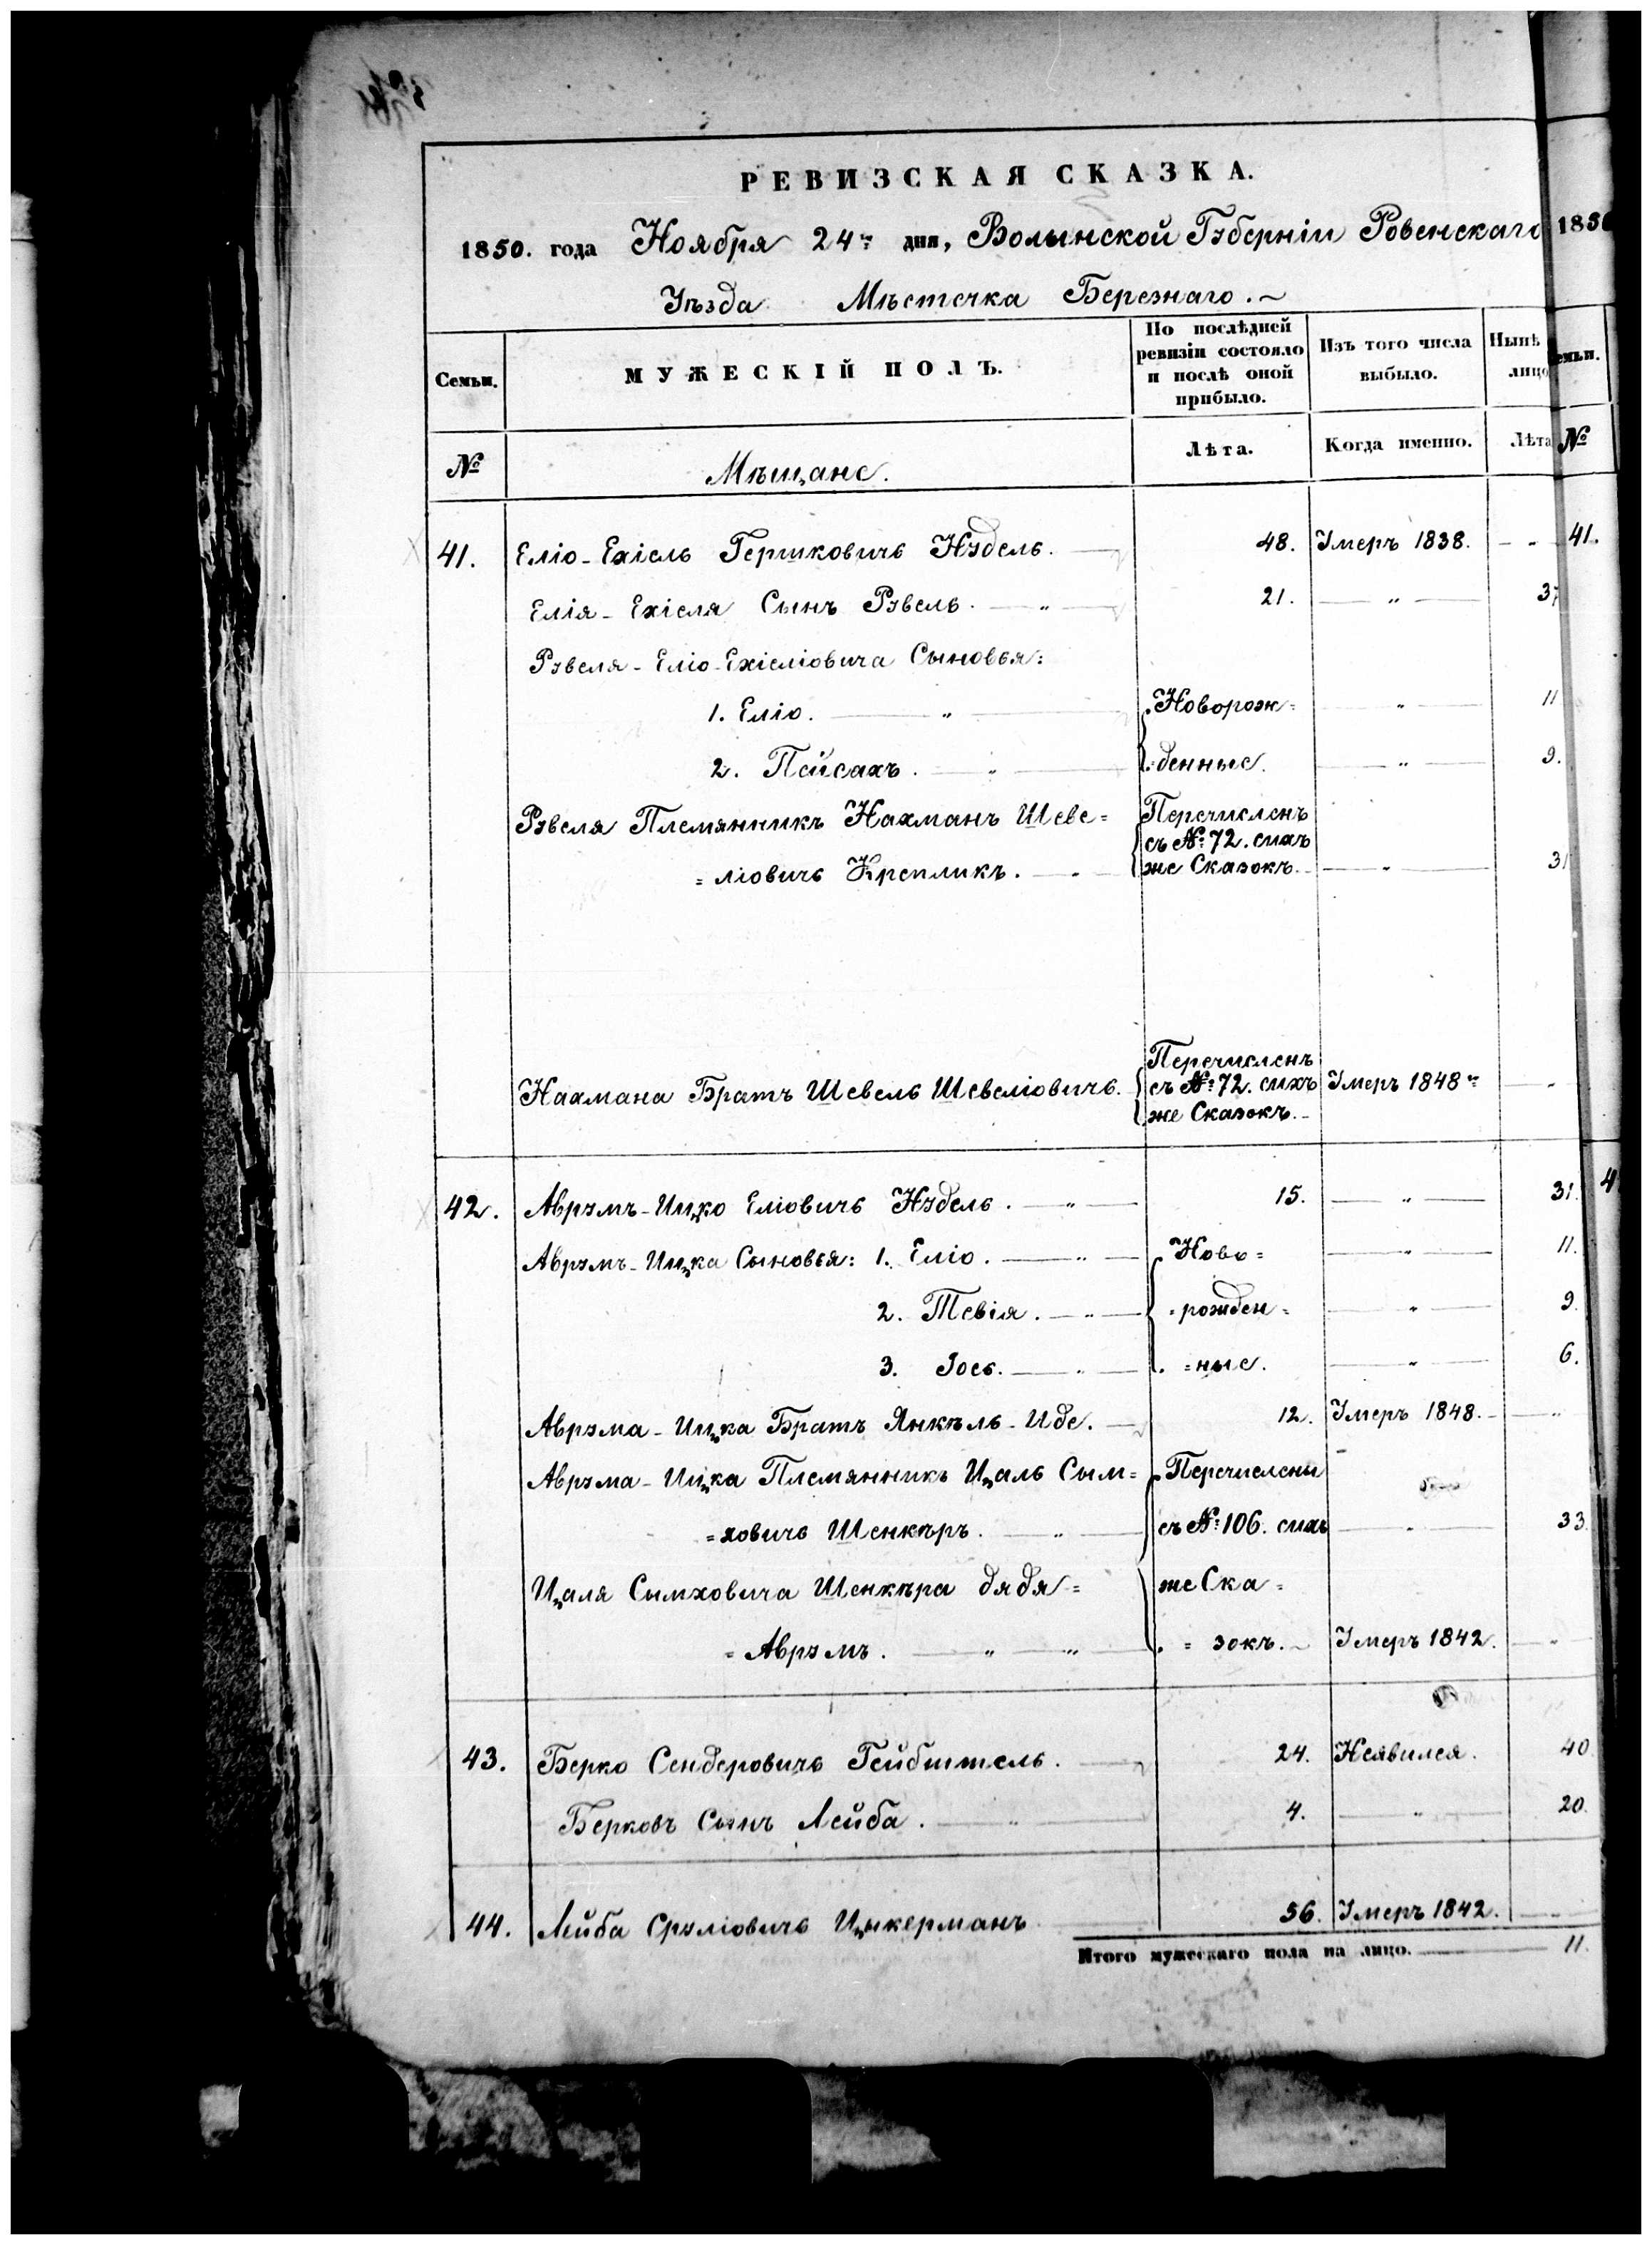 РЕВИЗСКАЯ СКАЗКА.
1850. года Ноября 24го дня, Волынской Губерніи Ровенскаго
Уѣзда Мѣстечка Березнаго.
Семьи. МУЖЕСКІЙ ПОЛЪ. По послѣдней ревизіи состояло и послѣ оной прибыло. Изъ того числа выбыло. Нынѣ лицо
№ Мѣщане. Лѣта. Когда именно. Лѣта
41. Еліо-Ехіель Гершковичь Нудель. 48. Умеръ 1838. - -
Елія-Ехіеля Сынъ Рувель. 21. — " — 37
Рувеля-Еліо-Ехіеліовича Сыновья:
1. Еліо. — " — Новорож= — " — 11
2. Пейсахъ. — " — =денные. — " — 9.
Рувеля Племянникъ Нахманъ Шеве= Перечисленъ
съ №72. сихъ
=ліовичь Крепликъ. же Сказокъ. — " — 31
Нахмана Братъ Шевель Шевеліовичь. Перечисленъ
съ №72. сихъ Умеръ 1848го
же Сказокъ.
42. Аврумъ-Ицко Еліовичь Нудель. — " — 15. — " — 31.
Аврумъ-Ицка Сыновья: 1. Еліо. — " — Ново= — " — 11.
2. Тевія. — " — =рожден= — " — 9.
3. Іось. — " — =ные. — " — 6.
Аврума-Ицка Братъ Янкѣль-Иде. 12. Умеръ 1848. — " —
Аврума-Ицка Племянникъ Цаль Сым= Перечислены
=ховичь Шенкѣръ. — " — съ №106. сихъ — " — 33.
Цаля Сымховича Шенкѣра дядя= же Ска=
=Аврумъ. — " — " — =зокъ. Умеръ 1842. — " —
43. Берко Сендеровичь Гейбштель. 24. Неявился. 40
Берковъ Сынъ Лейба. — " — 4. — " — 20.
44. Лейба Сруліовичь Цукерманъ 56. Умеръ 1842.
Итого мужескаго пола на лицо. 11.
1850
№
41.